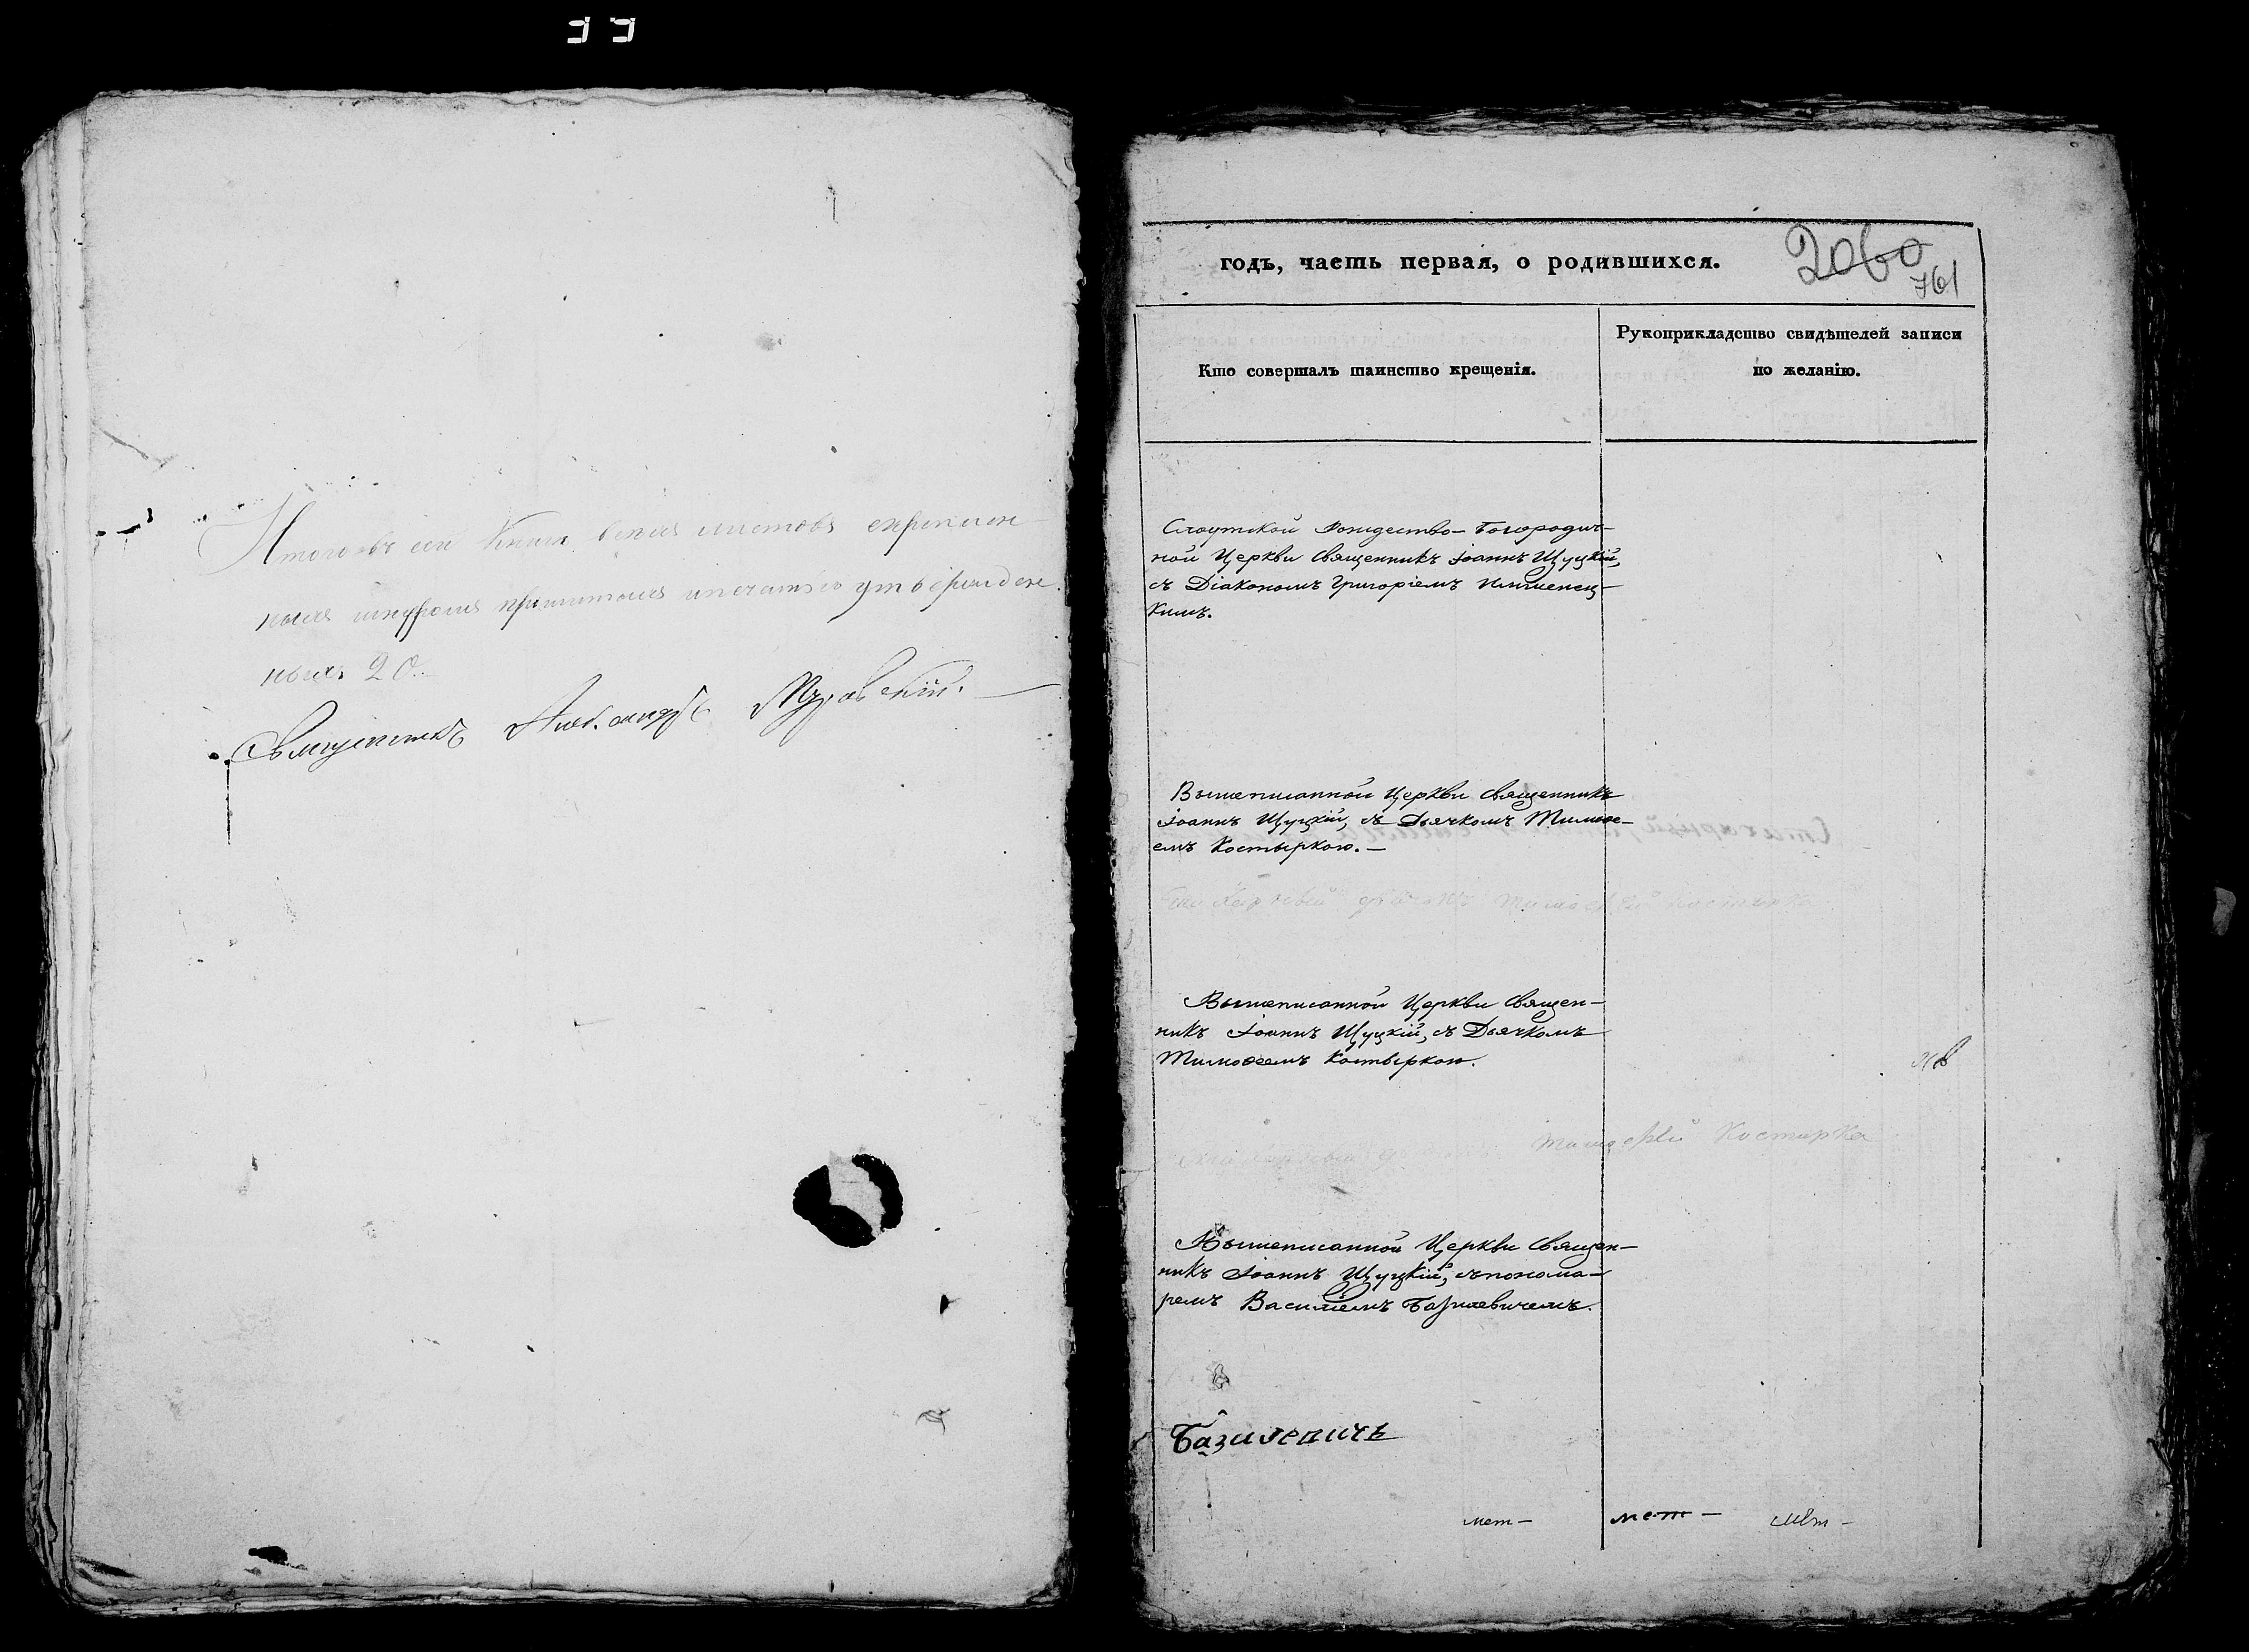 Итого въ сей Книгѣ всѣхъ листовъ скрѣплен-
ныхъ шнуромъ прошитыхъ и печатью утвержден-
ныхъ 20.
Священникъ Александръ
годъ, часть первая, о родившихся.
2060
761
Кто совершалъ таинство крещенія.
Рукоприкладство свидѣтелей записи
по желанію.
Слуцкой Рождество-Богородич-
ной Церкви Священникъ Іоаннъ Щуцкій,
съ Діакономъ Григоріемъ
кимъ.
Вышеписанной Церкви Священникъ
Іоаннъ Щуцкій, съ Дьячкомъ Тимоѳе-
емъ Костыркою.—
Стихарный дьячокъ Тимоѳей Костырка
Вышеписанной Церкви Священ-
никъ Іоаннъ Щуцкій, съ Дьячкомъ
Тимоѳеемъ Костыркою.
Тимоѳей Костырка
Вышеписанной Церкви Священ-
никъ Іоаннъ Щуцкій, съ понома-
ремъ Василіемъ Базилевичемъ.
Базилевичъ
мет— мет— мет—